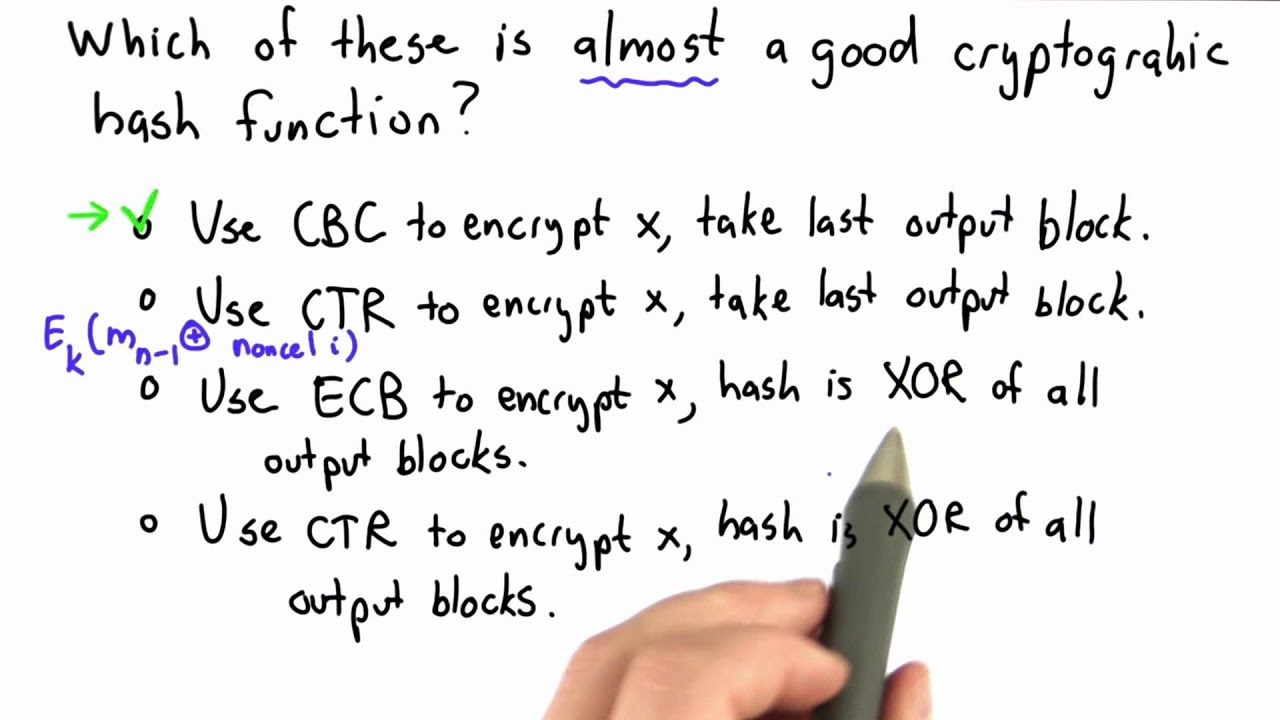 Which of these is almost a good cryptograhic
hash function?
→ ✓ Use CBC to encrypt x, take last output block.
o Use CTR to encrypt x, take last output block.
E_k(m_{n-1} ⊕ nonce | i)
o Use ECB to encrypt x, hash is XOR of all
output blocks.
o Use CTR to encrypt x, hash is XOR of all
output blocks.